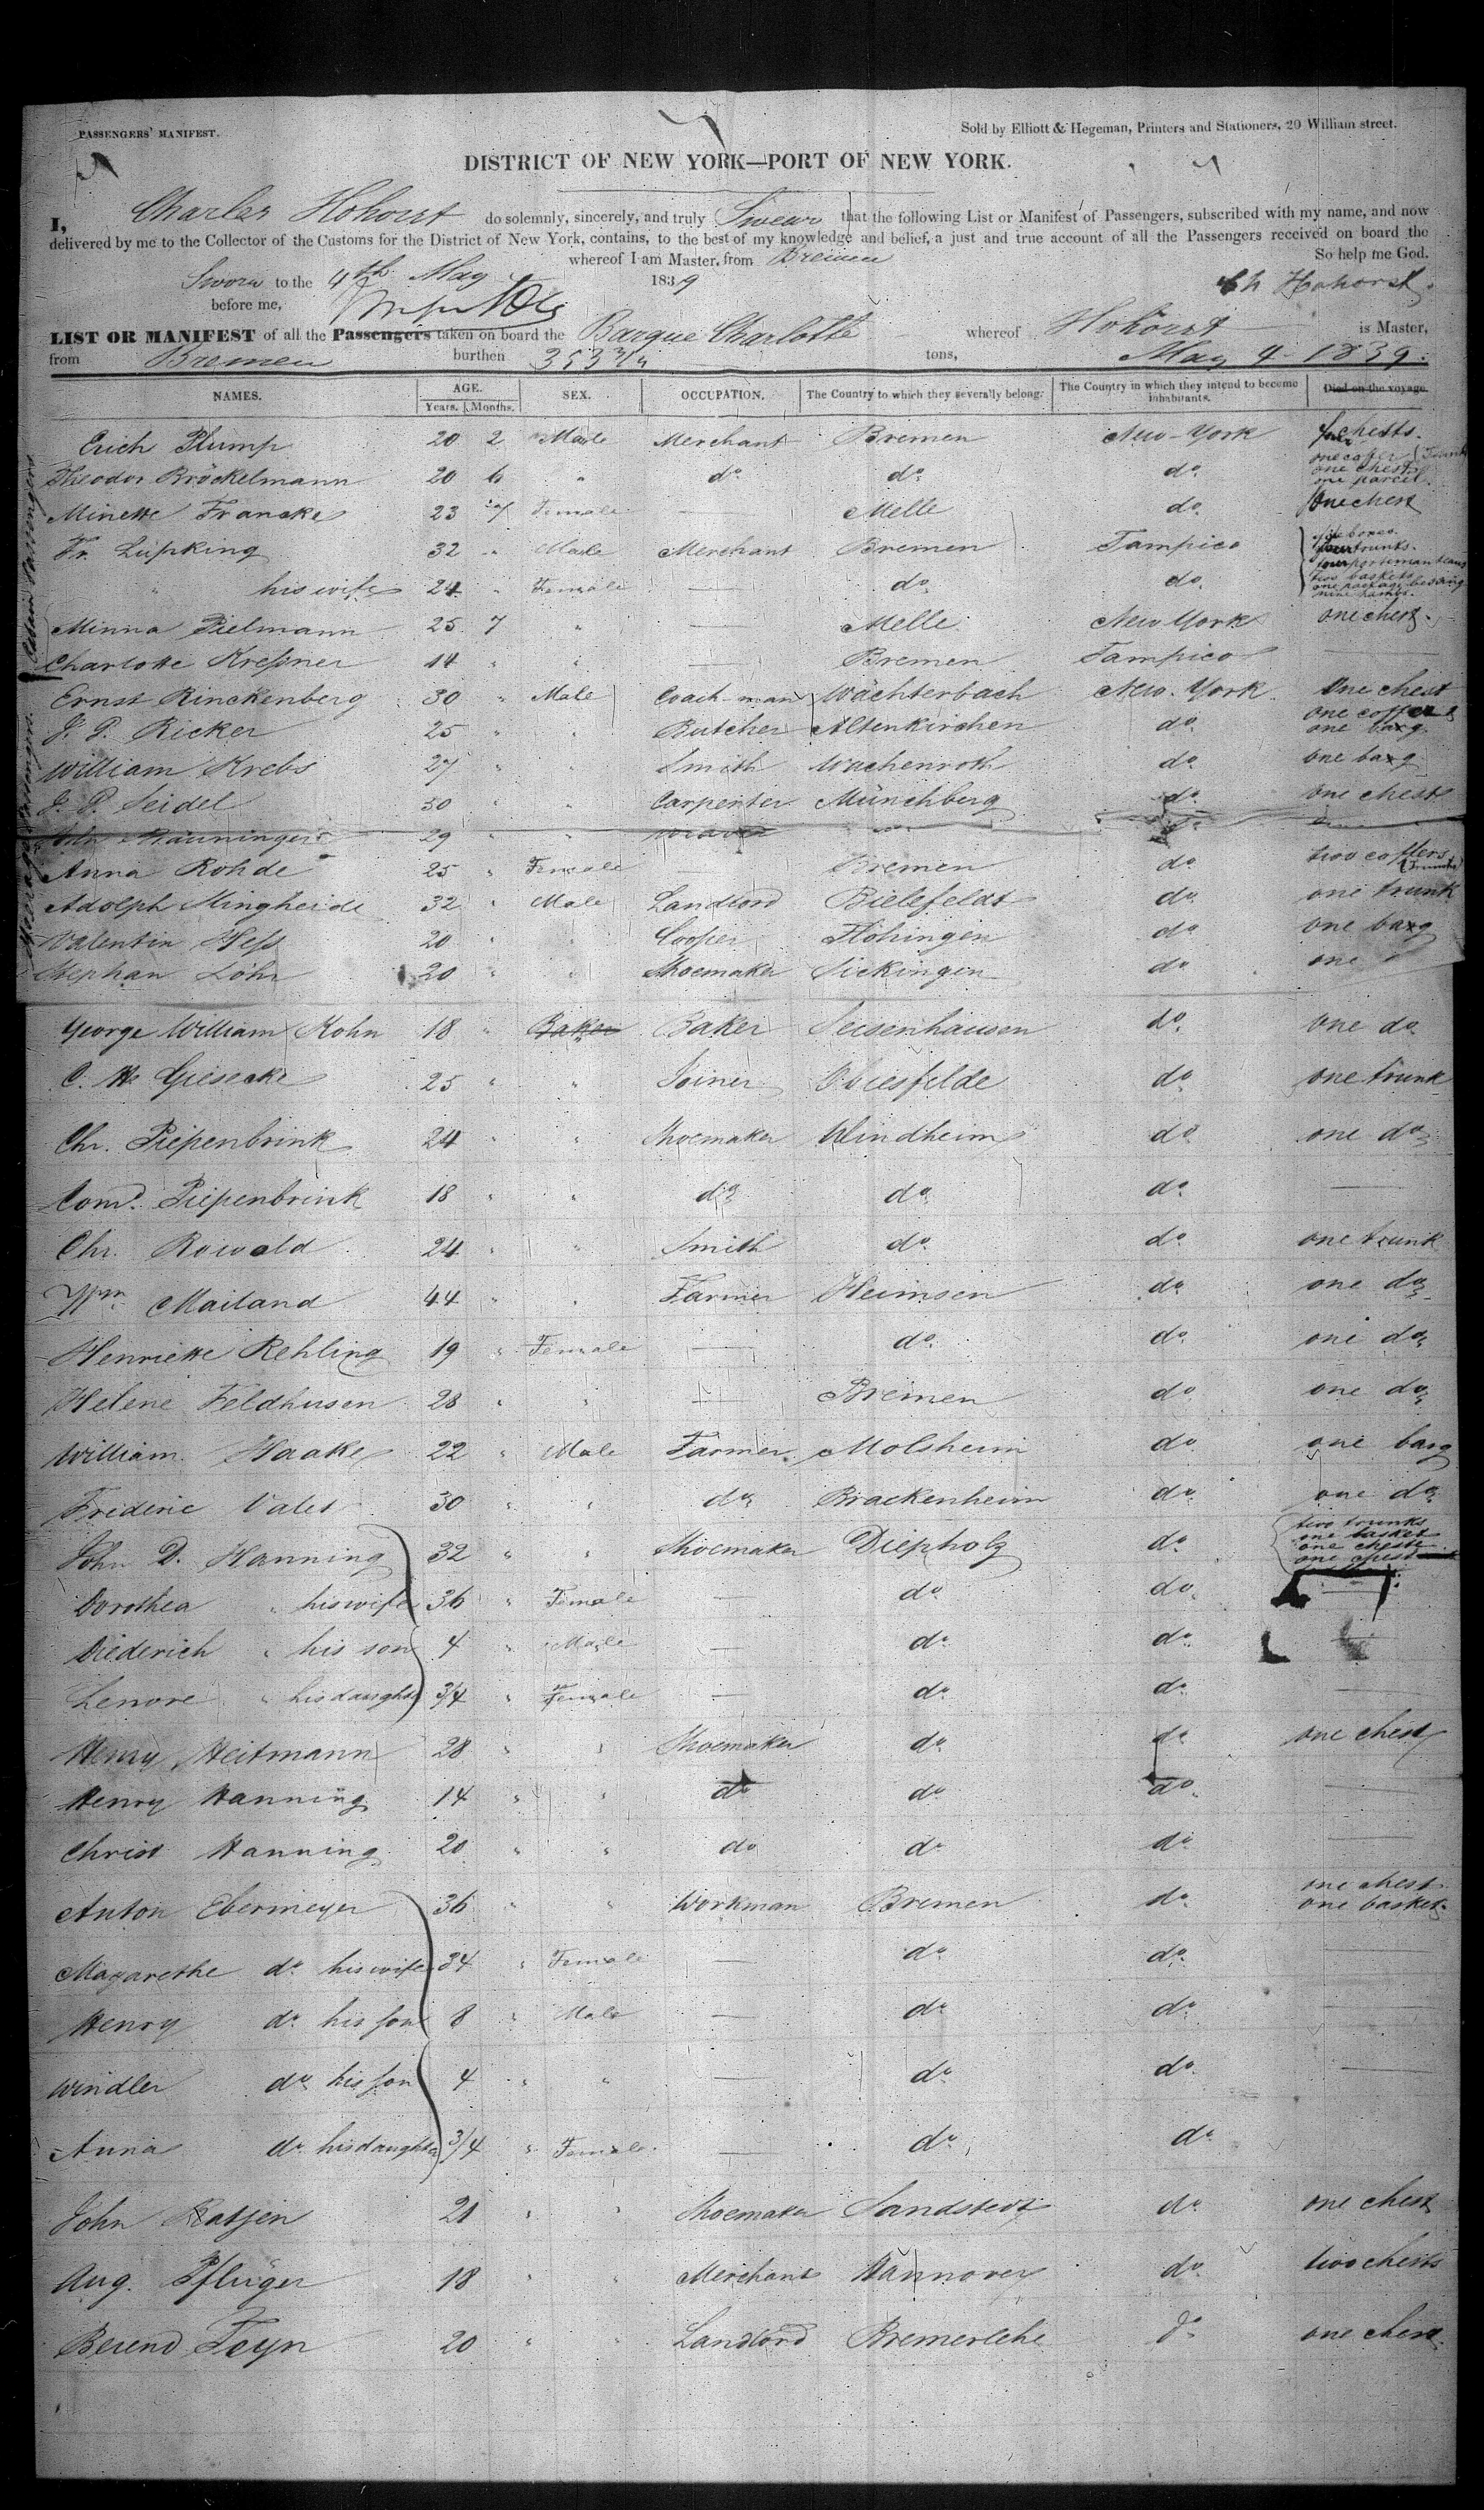 PASSENGERS' MANIFEST.
Sold by Elliott & Hegeman, Printers and Stationers, 29 William street.
DISTRICT OF NEW YORK—PORT OF NEW YORK.
I, Charles Hohorst do solemnly, sincerely, and truly Swear that the following List or Manifest of Passengers, subscribed with my name, and now
delivered by me to the Collector of the Customs for the District of New York, contains, to the best of my knowledge and belief, a just and true account of all the Passengers received on board the
whereof I am Master, from Bremen So help me God.
Sworn to the 4th May 1839 Ch Hohorst
before me,
LIST OR MANIFEST of all the Passengers taken on board the Barque Charlotte whereof Hohorst is Master,
from Bremen burthen 353 tons, May 4 - 1839.
NAMES. AGE. Years. Months. SEX. OCCUPATION. The Country to which they severally belong. The Country in which they intend to become inhabitants. Died on the voyage.
Cabin Passengers
Steerage Passengers
Erich Plump 20 2 Male Merchant Bremen New-York chests.
Theodor Bröckelmann 20 6 " do do. do. one coffer (Trunk) one chest one parcel.
Minette Francke 23 Female — Melle do. One chest
Fr. Lüpking 32 " Male Merchant Bremen Tampico boxes. four trunks.
" his wife 24 " Female — do. do. two baskets
Minna Pielmann 25 7 " — Melle New York one chest.
Charlotte Kreßner 14 " " — Bremen Tampico —
Ernst Rinckenberg 30 " Male Coach-man Wächterbach New-York One chest
J. P. Ricker 25 " " Butcher Altenkirchen do. one coffer one bag
William Krebs 27 " " Smith Wachenroth do. one bag
J. P. Seidel 30 " " Carpenter Münchberg do. one chest
29 " " weaver
Anna Rohde 25 " Female — Bremen do. two coffers (Trunks)
Adolph Mingheide 32 " Male Landlord Bielefeldt do. one trunk
Valentin Heß 20 " " Cooper Flöhingen do. one bag
Stephan Löhr 20 " " Shoemaker Sickingen do one "
George William Kohn 18 " Baker Baker Seisenhausen do. one do
C. W. Giesecke 25 " " Joiner Obiesfelde do. one trunk
Chr. Piepenbrink 24 " " Shoemaker Windheim do. one do.
Conr. Piepenbrink 18 " " do. do. do. —
Chr. Rowold 24 " " Smith do. do. one trunk
Wm Mailand 44 " " Farmer Heimsen do. one do.
Henriette Rehling 19 " Female — do. do. one do.
Helene Feldhusen 28 " " — Bremen do one do.
William Haake 22 " Male Farmer Molsheim do. one bag
Frederic Vales 30 " " do. Brackenheim do. one do.
John D. Hanning 32 " " Shoemaker Diepholz do. two trunks one basket one chest one chest
Dorothea " his wife 36 " Female — do. do. —
Diederich " his son 4 " Male — do. do. —
Lenore " his daughter 3/4 " Female — do. do. —
Henry Heitmann 28 " " Shoemaker do. do. one chest
Henry Hanning 14 " " do do. do. —
Christ Hanning 20 " " do do. do. —
Anton Ebermeyer 36 " " Workman Bremen do. one chest one basket.
Magarethe do. his wife 34 " Female — do. do. —
Henry do. his son 8 " Male — do. do. —
Windler do. his son 4 " " — do. do. —
Anna do. his daughter 3/4 " Female — do. do.
John Katjen 21 " " Shoemaker Sandstedt do. one chest
Aug. Pflüger 18 " " Merchant Hannover do. two chests
Berend Feyn 20 " " Landlord Bremerlehe do. one chest.